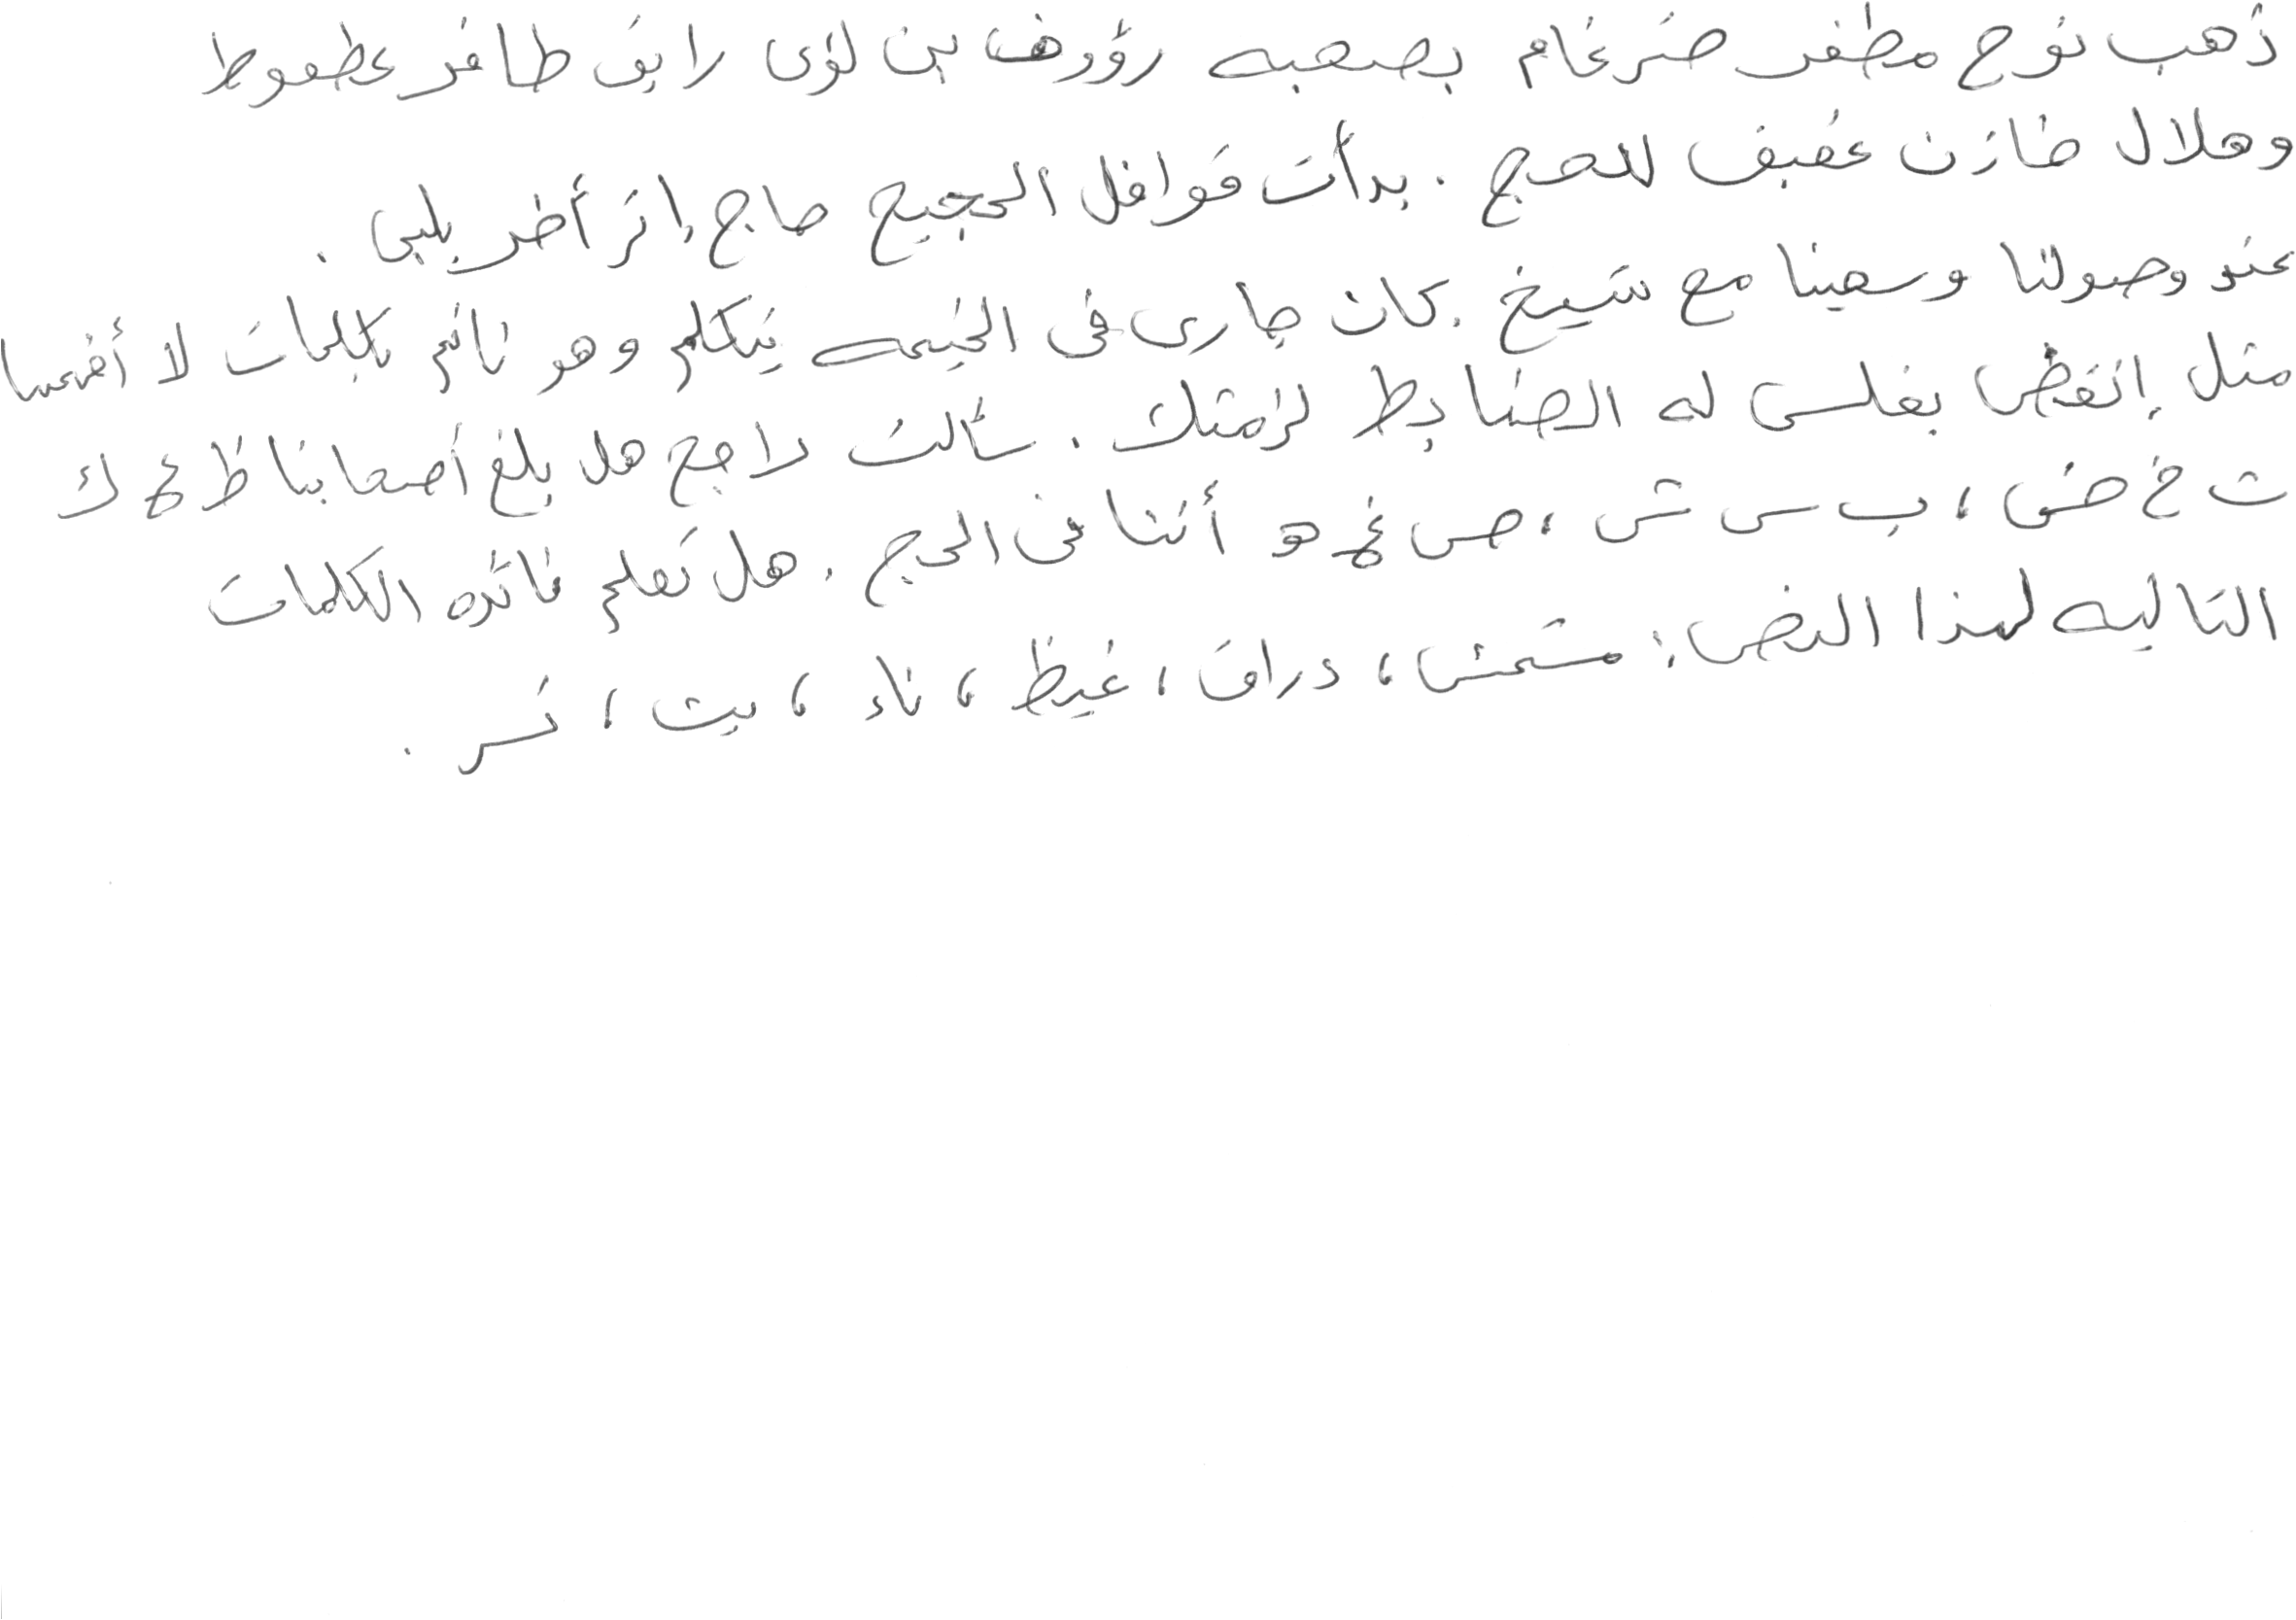 ذهب نوح مظفر ضرغام بصحبه رؤوف بن لؤى رايق ظافر عطعوط
وهلال خازن عفيف للحج . بدأت قوافل الحجيج حاج إثر أخر يلبى .
عند وصولنا وسعينا مع شيخ . كان جارى فى الخيمه يتكلم وهو نائم بكلمات لا أفهمها
مثل إنقض بغلس له الضابط لزمتك . سألت راجح هل بلغ أصحابنا ظ ع ك
ث خ ض ، ب س ش ، ص غ ه أننا فى الحج . هل تعلم فائده الكلمات
التاليه لهذا النص : مشمش ، دراق ، غيظ ، ناء ، يث ، نسر .